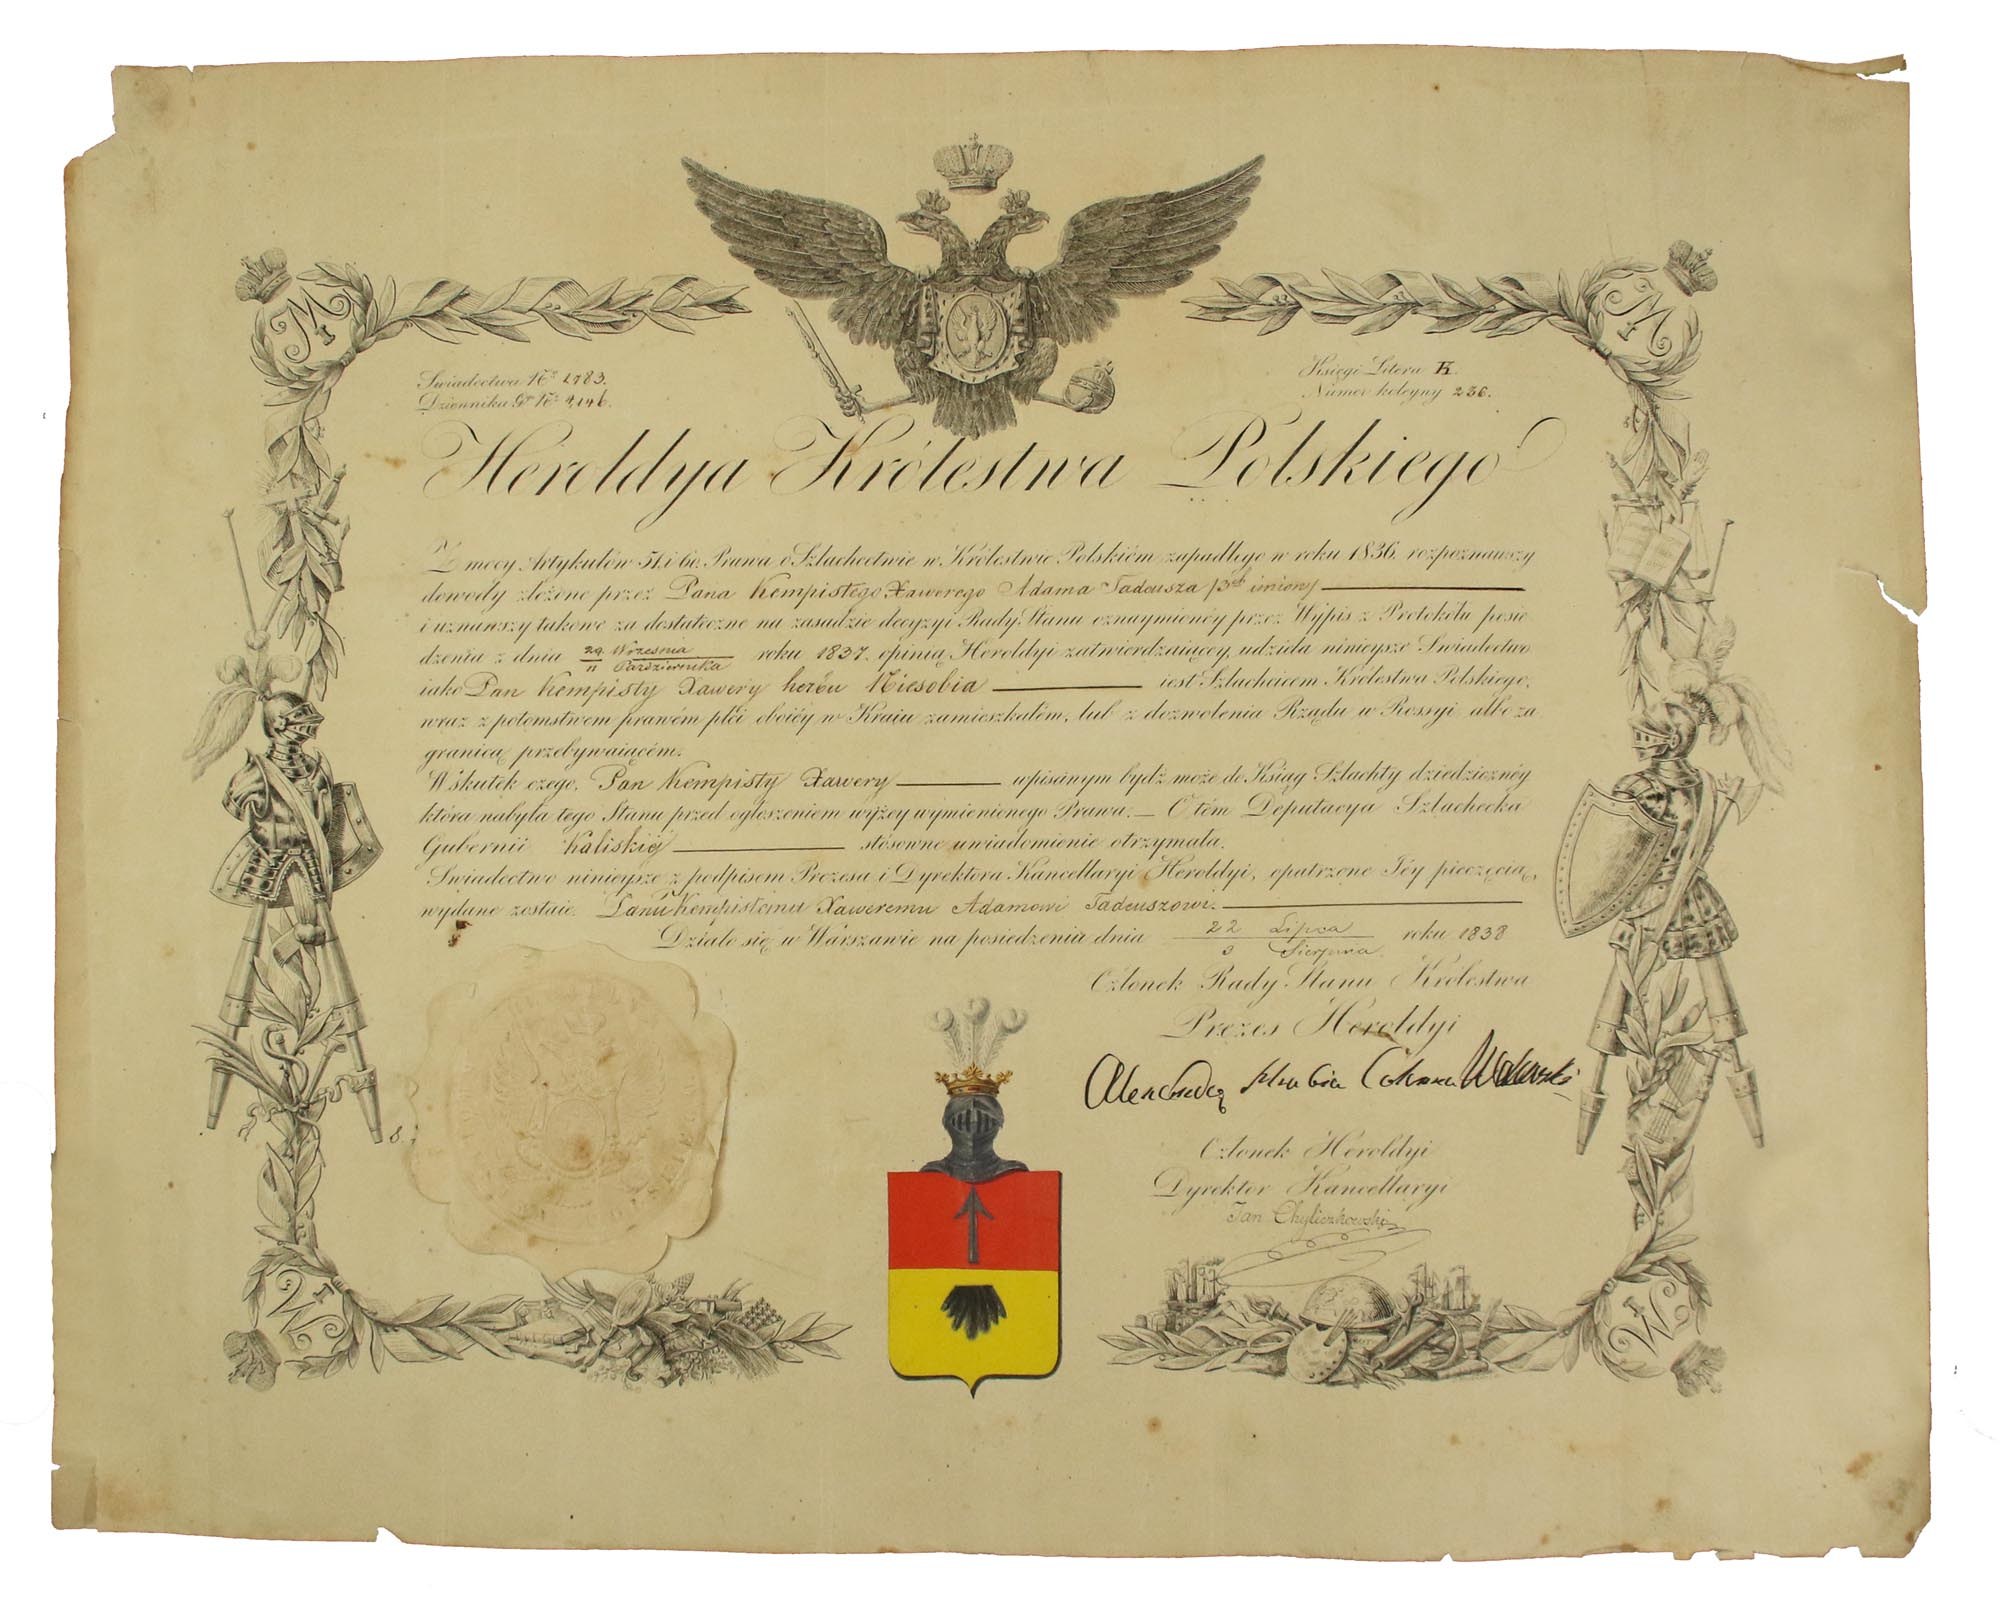 Swiadectwa No 1783.
Dziennika Gł. No 4,146.
Księgi Litera K.
Numer koleyny 236.
Heroldya Królestwa Polskiego
Z mocy Artykułów 51. i 60. Prawa o Szlachectwie w Królestwie Polskiém zapadłego w roku 1836. rozpoznawszy
dowody złożone przez Pana Kempistego Xawerego Adama Tadeusza /3ch imion/
i uznawszy takowe za dostateczne na zasadzie decyzyi Rady Stanu oznaymionéy przez Wypis z Protokółu posie
dzenia z dnia 29 Wrzesnia / 11 Pazdziernika roku 1837. opinią Heroldyi zatwierdzaiącéy, udziela ninieysze Swiadectwo
iako Pan Kempisty Xawery herbu Niesobia iest Szlachcicem Królestwa Polskiego,
wraz z potomstwem prawém płci oboiéy w Kraiu zamieszkałém, lub z dozwolenia Rządu w Rossyi albo za
granicą przebywaiącém.
W skutek czego, Pan Kempisty Xawery wpisanym bydź może do Ksiąg Szlachty dziedzicznéy
która nabyła tego Stanu przed ogłoszeniem wyżey wymienionego Prawa. — O tém Deputacya Szlachecka
Gubernii Kaliskiéj stósowne uwiadomienie otrzymała.
Swiadectwo ninieysze z podpisem Prezesa i Dyrektora Kancellaryi Heroldyi, opatrzone Jéy pieczęcią,
wydane zostaie Panu Kempistemu Xaweremu Adamowi Tadeuszowi.
Działo się w Warszawie na posiedzeniu dnia 22 Lipca / 3 Sierpnia roku 1838
Członek Rady Stanu Królestwa
Prezes Heroldyi
Alexander Hrabia Colonna Walewski
Członek Heroldyi
Dyrektor Kancellaryi
Jan Chyliczkowski